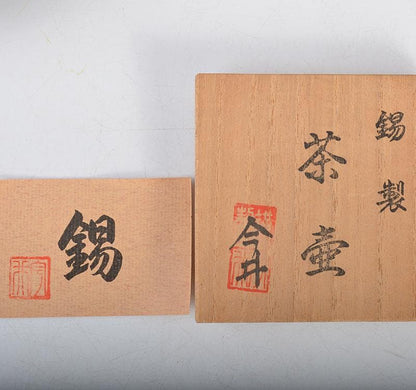 錫製
茶壺
今井
錫